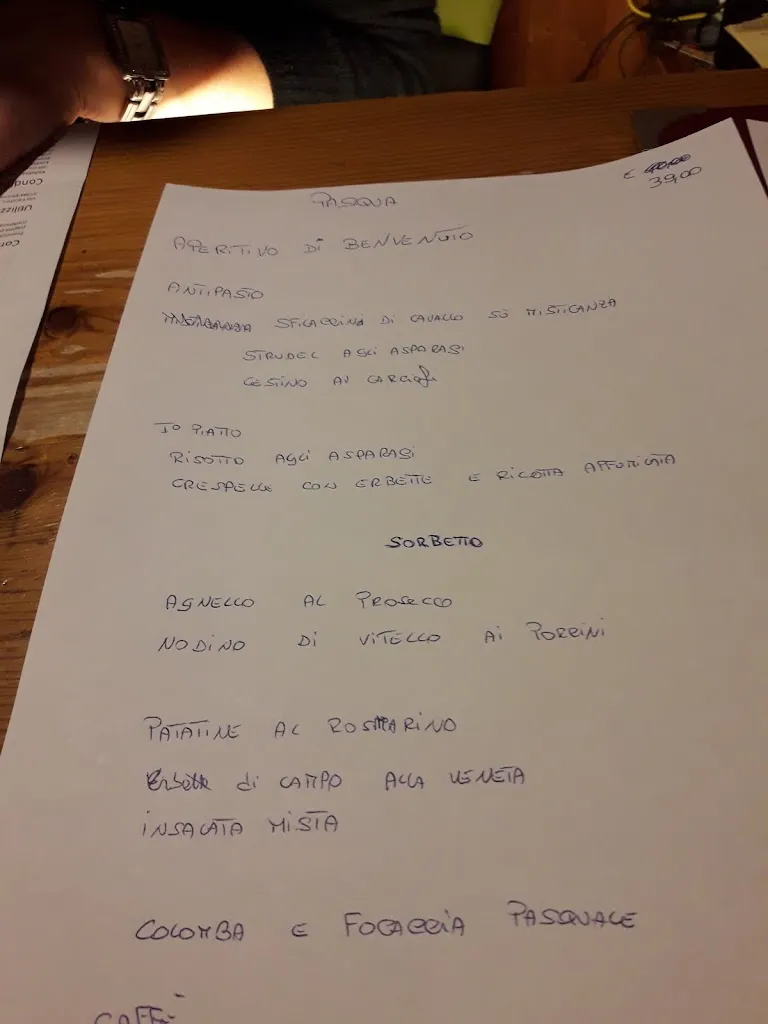 € 40,00
39,00
PASQUA
APERITIVO Di BENVENUTO
ANTIPASTO
SFILACCINA DI CAVALLO SU MISTICANZA
STRUDEL AGLI ASPARAGI
CESTINO AI CARCIOFI
I° PIATTO
RISOTTO AGLI ASPARAGI
CRESPELLE CON ERBETTE E RICOTTA AFFUMICATA
SORBETTO
AGNELLO AL PROSECCO
NODINO DI VITELLO AI PORRINI
PATATINE AL ROSMARINO
Erbette di CAMPO ALLA VENETA
INSALATA MISTA
COLOMBA E FOCACCIA PASQUALE
CAFFÈ